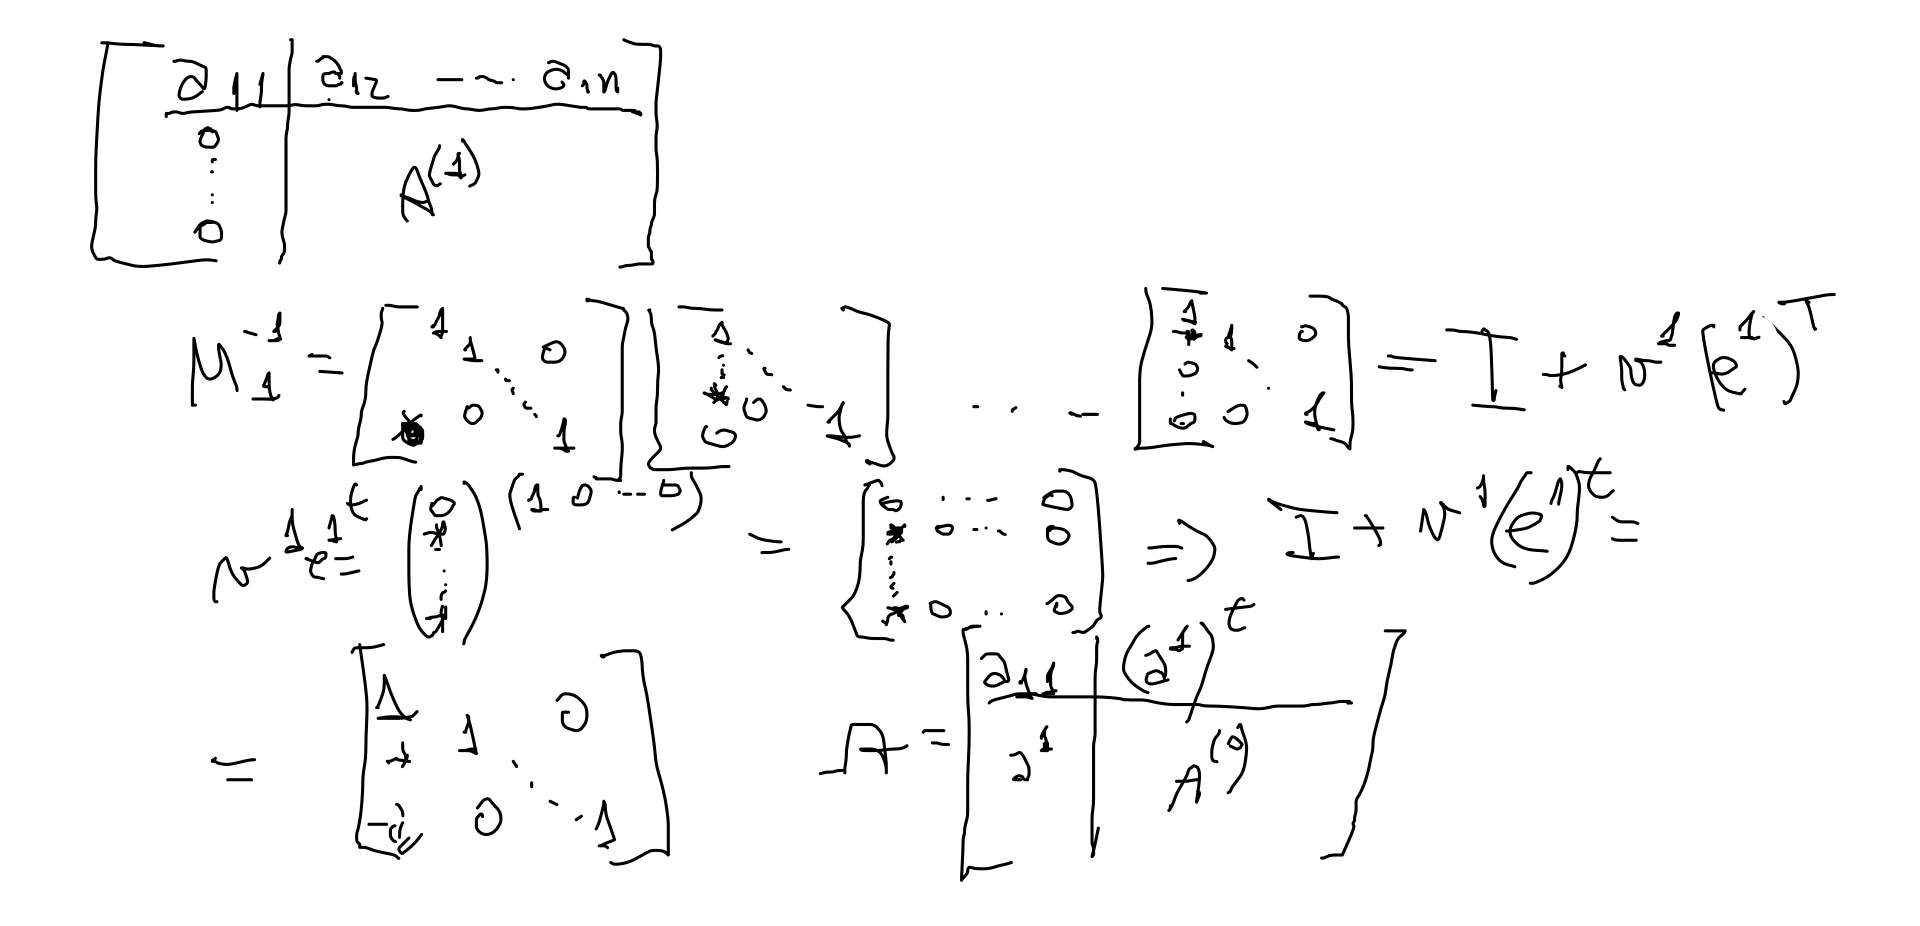 [ a11 | a12 --... a1n ]
[ 0 ⋮ 0 | A^(1) ]
M_1^{-1} = [ 1 1 ⋱ 0 * 0 1 ] [ 1 ⋮ * 0 0 ⋱ 1 ] ... [ 1 * 1 0 0 ⋱ 0 0 1 ] = I + v^1 (e^1)^T
v^1 e^1^t = ( 0 * ⋮ * ) (1 0 ... 0) = [ 0 ... 0 * 0 ... 0 ⋮ * 0 .. 0 ] => I + v^1 (e^1)^t =
= [ 1 * 1 0 ⋱ 0 1 ] A = [ a11 | (a^1)^t ; a^1 | A^(0) ]